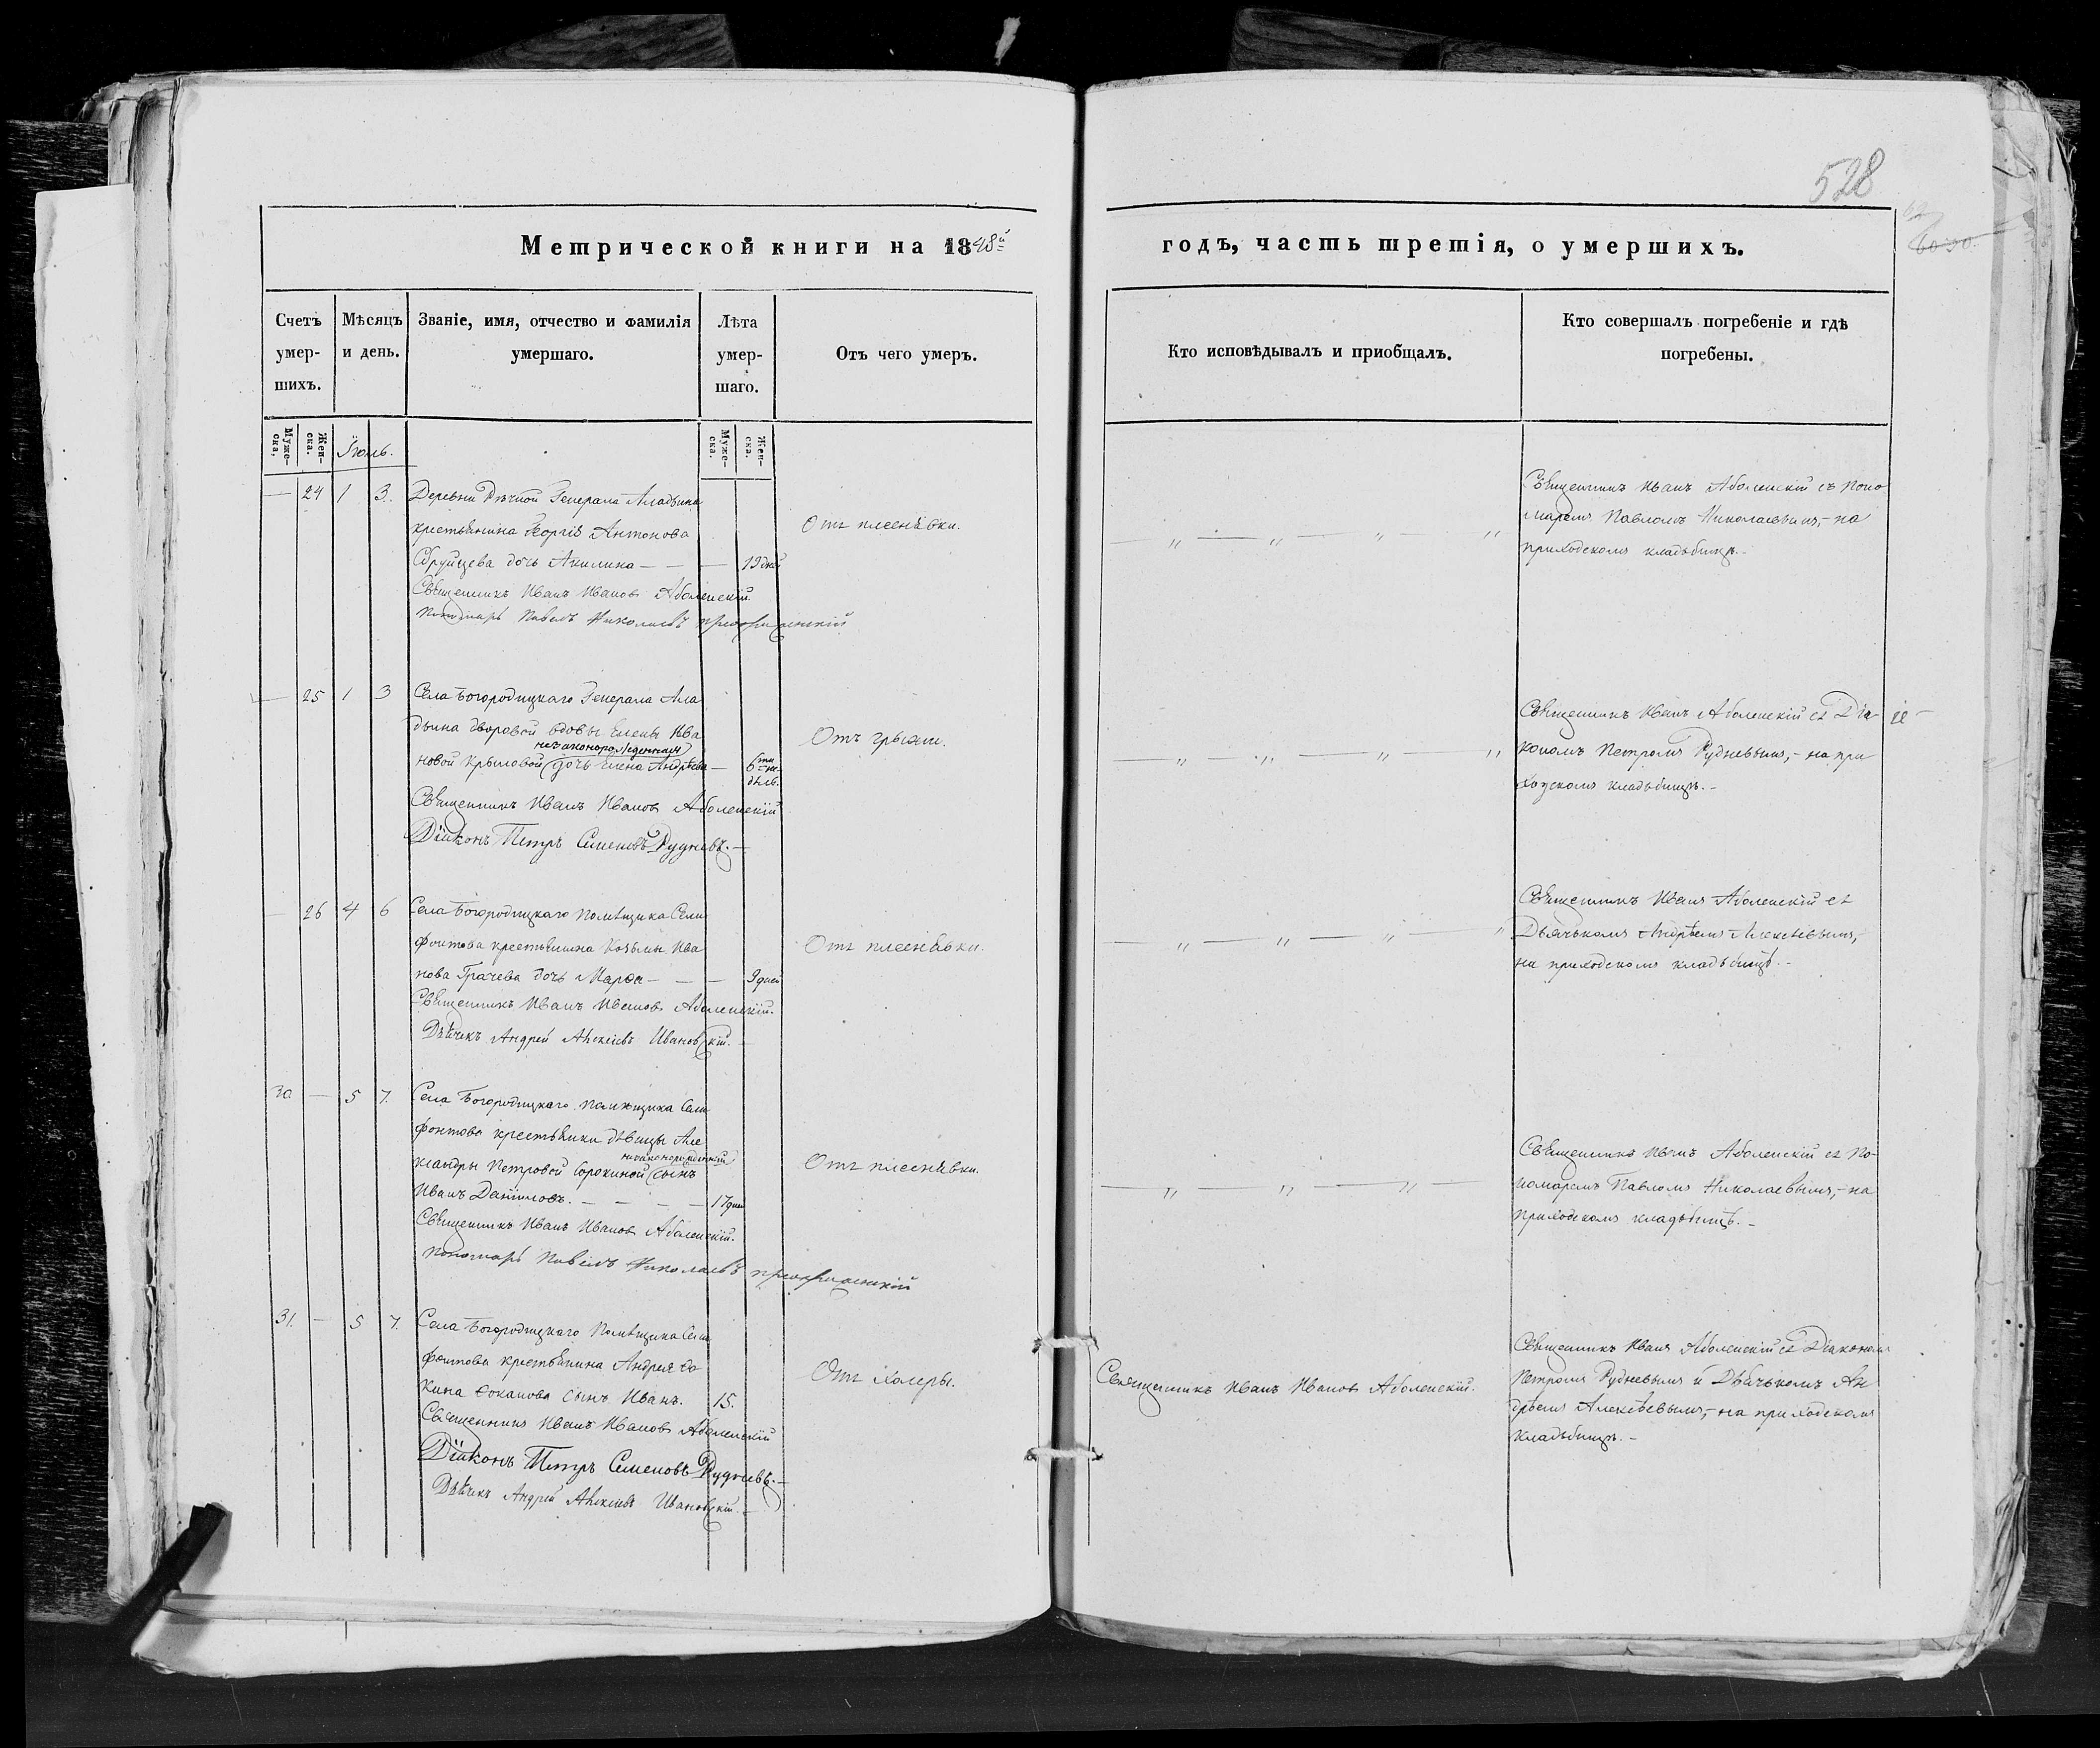 528
Метрической книги на 1848й
годъ, часть третія, о умершихъ.
Счетъ умер-шихъ.
Мѣсяцъ и день.
Званіе, имя, отчество и фамилія умершаго.
Лѣта умер-шаго.
Отъ чего умеръ.
Кто исповѣдывалъ и приобщалъ.
Кто совершалъ погребеніе и гдѣ погребены.
Муже-ска,
Жен-ска.
Іюль.
Муже-ска.
Жен-ска.
— 24 1 3. Деревни Генерала Аладьина
крестьянина Георгія Антонова
дочь Акилина — — — 19 дней
Священникъ Иванъ Ивановъ Аболенскій.
Пономарь Павелъ Николаевъ
Отъ плеснявки.
— „ — „ — „ — „
Священникъ Иванъ Аболенскій съ Поно
маремъ Павломъ Николаевымъ,– на
приходскомъ кладьбищѣ.–
— 25 1 3 Села Богородицкаго Генерала Ала
дьина дворовой вдовы Елены Ива
незаконорожденная
новой Крыловой (дочь Елена Андрѣева — 6ти не
дѣль.
Священникъ Иванъ Ивановъ Аболенскій
Діаконъ Петръ Семеновъ Рудневъ.—
Отъ грыжи.
— „ — „ — „ — „
Священникъ Иванъ Аболенскій съ Діа
кономъ Петромъ Рудневымъ,– на при
ходскомъ кладьбищѣ.–
— 26 4 6 Села Богородицкаго Помѣщика Сели
фонтова крестьянина Козьмы Ива
нова Грачева дочь Марфа — — — 9 дней
Священникъ Иванъ Ивановъ Аболенскій.
Дьячекъ Андрей Алексіевъ Ивановскій.
Отъ плеснявки.
— „ — „ — „ — „
Священникъ Иванъ Аболенскій съ
Дьячькомъ Андрѣемъ Алексѣевымъ,–
на приходскомъ кладьбищѣ.–
30 — 5 7. Села Богородицкаго Помѣщика Сели
фонтова крестьянки дѣвицы Але
незаконорожденный
ксандры Петровой Сорокиной (сынъ
Иванъ Даниловъ. — — — — 17 дней
Священникъ Иванъ Ивановъ Аболенскій.
Пономарь Павелъ Николаевъ
Отъ плеснявки.
— „ — „ — „ —
Священникъ Иванъ Аболенскій съ По-
номаремъ Павломъ Николаевымъ,– на
приходскомъ кладьбищѣ.–
31. — 5 7. Села Богородицкаго Помѣщика Сели
фонтова крестьянина Андрея
сынъ Иванъ. 15.
Священникъ Иванъ Ивановъ Аболенскій
Діаконъ Петръ Семеновъ Рудневъ.—
Дьячекъ Андрей Алексіевъ Ивановскій.–
Отъ холеры.
Священникъ Иванъ Ивановъ Аболенскій.
Священникъ Иванъ Аболенскій съ Діакономъ
Петромъ Рудневымъ и Дьячькомъ Ан
дрѣемъ Алексѣевымъ,– на приходскомъ
кладьбищѣ.–